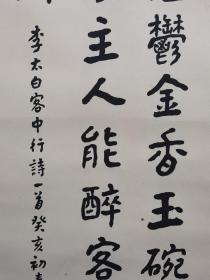 鬱金香玉碗
主人能醉客
李太白客中行詩一首癸亥初春